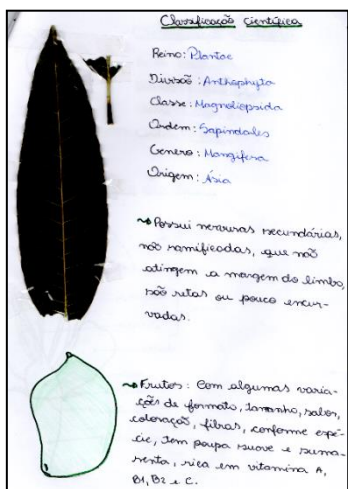 Classificação científica
Reino: Plantae
Divisão: Anthophyta
Classe: Magnoliopsida
Ordem: Sapindales
Genero: Mangifera
Origem: Ásia
Possui nervuras secundárias,
não ramificadas, que não
atingem a margem do limbo,
são retas ou pouco encur-
vadas.
Frutos: Com algumas varia-
ções de formato, tamanho, sabor,
coloração, fibras, conforme espé-
cie, tem poupa suave e suma-
renta, rica em vitamina A,
B1, B2 e C.